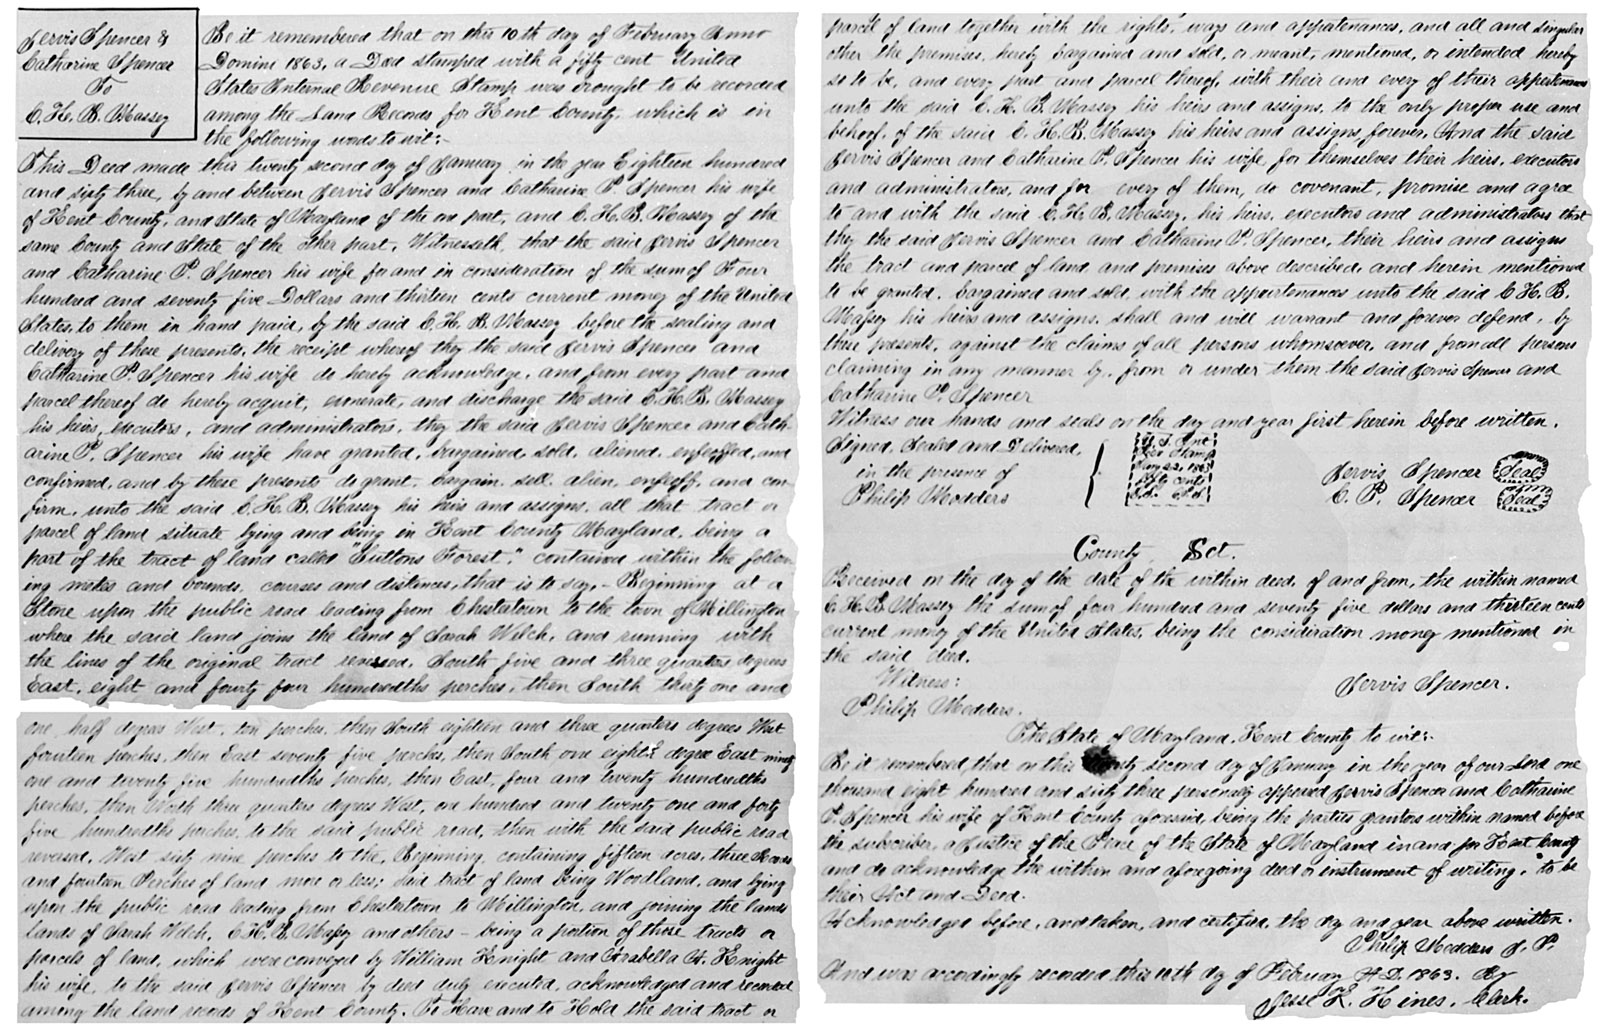 Jervis Spencer &
Catharine Spencer
To
C. H. B. Massey
Be it remembered that on this 10th day of February Anno
Domini 1863, a Deed stamped with a fifty cent United
States Internal Revenue Stamp was brought to be recorded
among the Land Records for Kent County, which is in
the following words to wit:-
This Deed made this twenty second day of January in the year Eighteen hundred
and sixty three, by and between Jervis Spencer and Catharine P. Spencer his wife
of Kent County, and State of Maryland of the one part, and C. H. B. Massey of the
same County and State of the other part, Witnesseth, that the said Jervis Spencer
and Catharine P. Spencer his wife for and in consideration of the sum of Four
hundred and seventy five Dollars and thirteen cents current money of the United
States, to them in hand paid, by the said C. H. B. Massey before the sealing and
delivery of these presents, the receipt whereof they the said Jervis Spencer and
Catharine P. Spencer his wife do hereby acknowledge, and from every part and
parcel thereof do hereby acquit, exonerate, and discharge the said C. H. B. Massey
his heirs, executors, and administrators, they the said Jervis Spencer and Cath-
arine P. Spencer his wife have granted, bargained, sold, aliened, enfeoffed, and
confirmed, and by these presents do grant, bargain, sell, alien, enfeoff, and con
firm, unto the said C. H. B. Massey his heirs and assigns, all that tract or
parcel of land situate lying and being in Kent County Maryland, being a
part of the tract of land called "Suttons Forest," contained within the follow
ing metes and bounds, courses and distances, that is to say,- Beginning at a
Stone upon the public road leading from Chestertown to the town of Millington
where the said land joins the land of Sarah Welch, and running with
the lines of the original tract reversed, South five and three quarters degrees
East, eight and fourty four hundredths perches, then South thirty one and
one half degrees West, ten perches, then South eighteen and three quarters degrees West
fourteen perches, then East seventy five perches, then South one eighth degree East ninety
one and twenty five hundredths perches, then East, four and twenty hundredths
perches, then North three quarters degrees West, one hundred and twenty one and forty
five hundredths perches, to the said public road, then with the said public road
reversed, West sixty nine perches to the, Beginning, containing fifteen acres, three Roods
and fourteen Perches of land more or less; said tract of land being Woodland, and lying
upon the public road leading from Chestertown to Millington, and joining the lands
lands of Sarah Welch, C. H. B. Massey and others - being a portion of those tracts or
parcels of land, which were conveyed by William Knight and Arabella A. Knight
his wife, to the said Jervis Spencer by deed duly executed, acknowledged and recorded
among the land records of Kent County. To Have and to Hold the said tract or
parcel of land together with the rights, ways and appertenances, and all and singular
other the premises, hereby bargained and sold, or meant, mentioned, or intended hereby
so to be, and every part and parcel thereof, with their and every of their appertenances
unto the said C. H. B. Massey his heirs and assigns, to the only proper use and
behoof, of the said C. H. B. Massey his heirs and assigns, forever, And the said
Jervis Spencer and Catharine P. Spencer his wife, for themselves their heirs, executors
and administrators, and for every of them, do covenant, promise and agree
to and with the said C. H. B. Massey, his heirs, executors and administrators that
they the said Jervis Spencer and Catharine P. Spencer, their heirs and assigns
the tract and parcel of land, and premises above described, and herein mentioned
to be granted, bargained and sold, with the appurtenances unto the said C. H. B.
Massey his heirs and assigns, shall and will warrant and forever defend, by
these presents, against the claims of all persons whomsoever, and from all persons
claiming in any manner by, from or under them the said Jervis Spencer and
Catharine P. Spencer
Witness our hands and seals on the day and year first herein before written.
Signed, Sealed and Delivered,
in the presence of
Philip Medders
U. S. Inr
Rev Stamp
Jany 22, 1863
fifty cents
Jervis Spencer Seal
C. P. Spencer Seal
County Sct.
Received on the day of the date of the within deed, of and from, the within named
C. H. B. Massey the sum of four hundred and seventy five dollars and thirteen cents
current money of the United States, being the consideration money mentioned in
the said deed.
Witness:
Philip Medders.
Jervis Spencer.
The State of Maryland, Kent County to wit:-
Be it remembered, that on this twenty second day of January in the year of our Lord one
thousand eight hundred and sixty three personaly appeared Jervis Spencer and Catharine
P. Spencer his wife of Kent County aforesaid, being the parties grantors within named before
the subscriber, a Justice of the Peace of the State of Maryland in and for Kent County
and do acknowledge the within and aforegoing deed or instrument of writing, to be
their Act and Deed.
Acknowledged before, and taken, and certified, the day and year above written.
Philip Medders J. P.
And was accordingly recorded this 10th day of February A. D. 1863. By
Jesse K. Hines, Clerk.